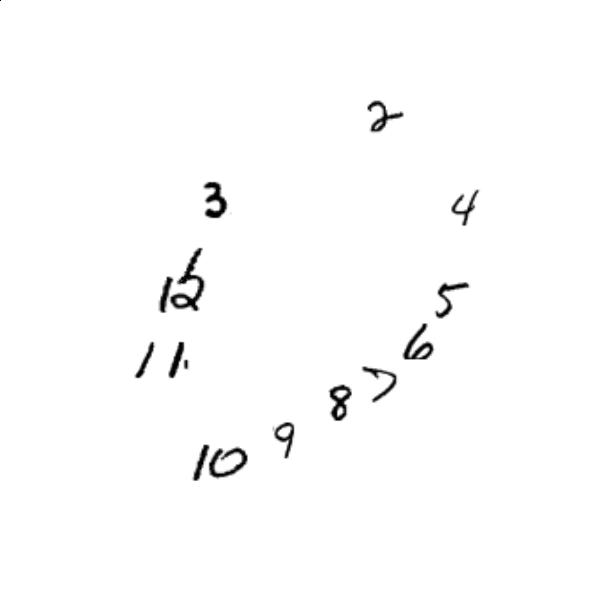 2
3
4
1
12
5
11
6
7
8
9
10